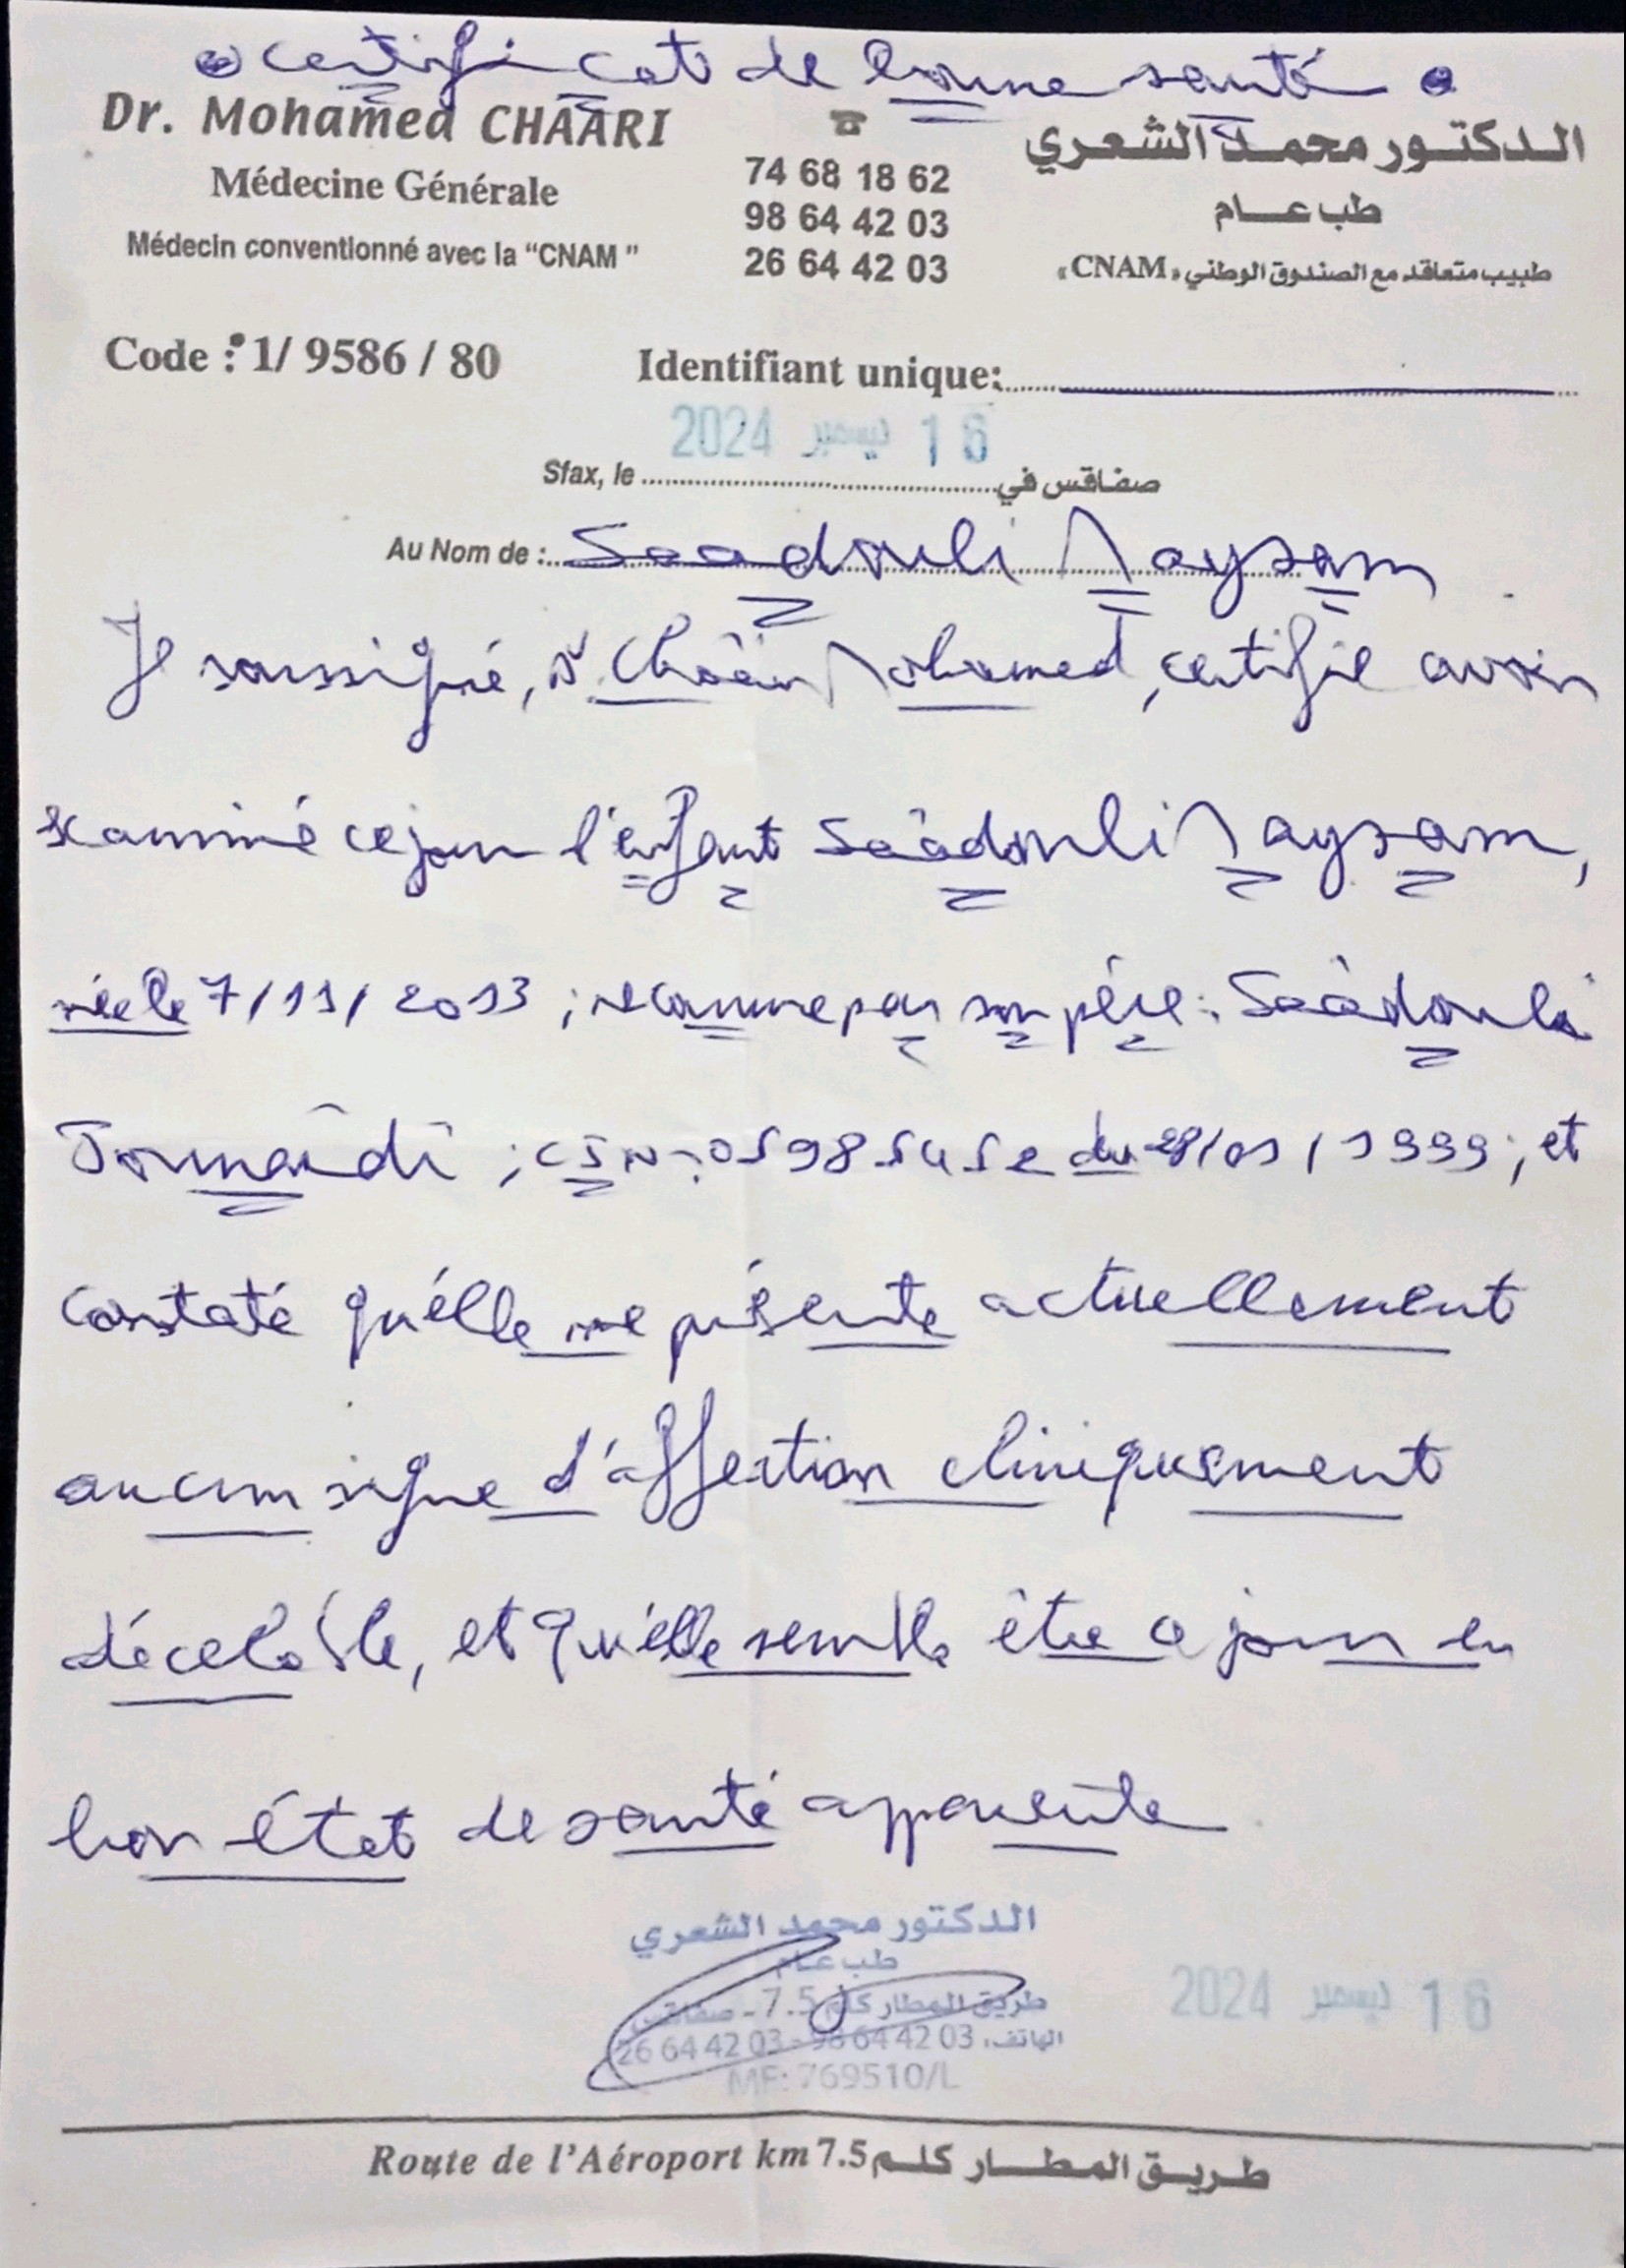 Certificat de bonne santé
Dr. Mohamed CHAARI
Médecine Générale
Médecin conventionné avec la “CNAM ”
74 68 18 62
98 64 42 03
26 64 42 03
الدكتور محمد الشعري
طب عام
طبيب متعاقد مع الصندوق الوطني «CNAM»
Code : 1/ 9586 / 80 Identifiant unique:
Sfax, le 16 ديسمبر 2024 صفاقس في
Au Nom de : Saadouli Maysam
Je soussigné, Dr. Chaâri Mohamed, certifie avoir
examiné ce jour l'enfant Saâdouli Maysam,
née le 7/11/2013 ; reconnue par son père : Saâdouli
; CIN : 05985452 du 28/01/1999 ; et
constaté qu'elle ne présente actuellement
aucun signe d'affection cliniquement
décelable, et qu'elle semble être ce jour en
bon état de santé apparente
الدكتور محمد الشعري
طب عام
طريق المطار كلم 7.5 - صفاقس
الهاتف: 98 64 42 03 - 26 64 42 03
MF: 769510/L
16 ديسمبر 2024
Route de l'Aéroport km 7.5 طريق المطار كلم